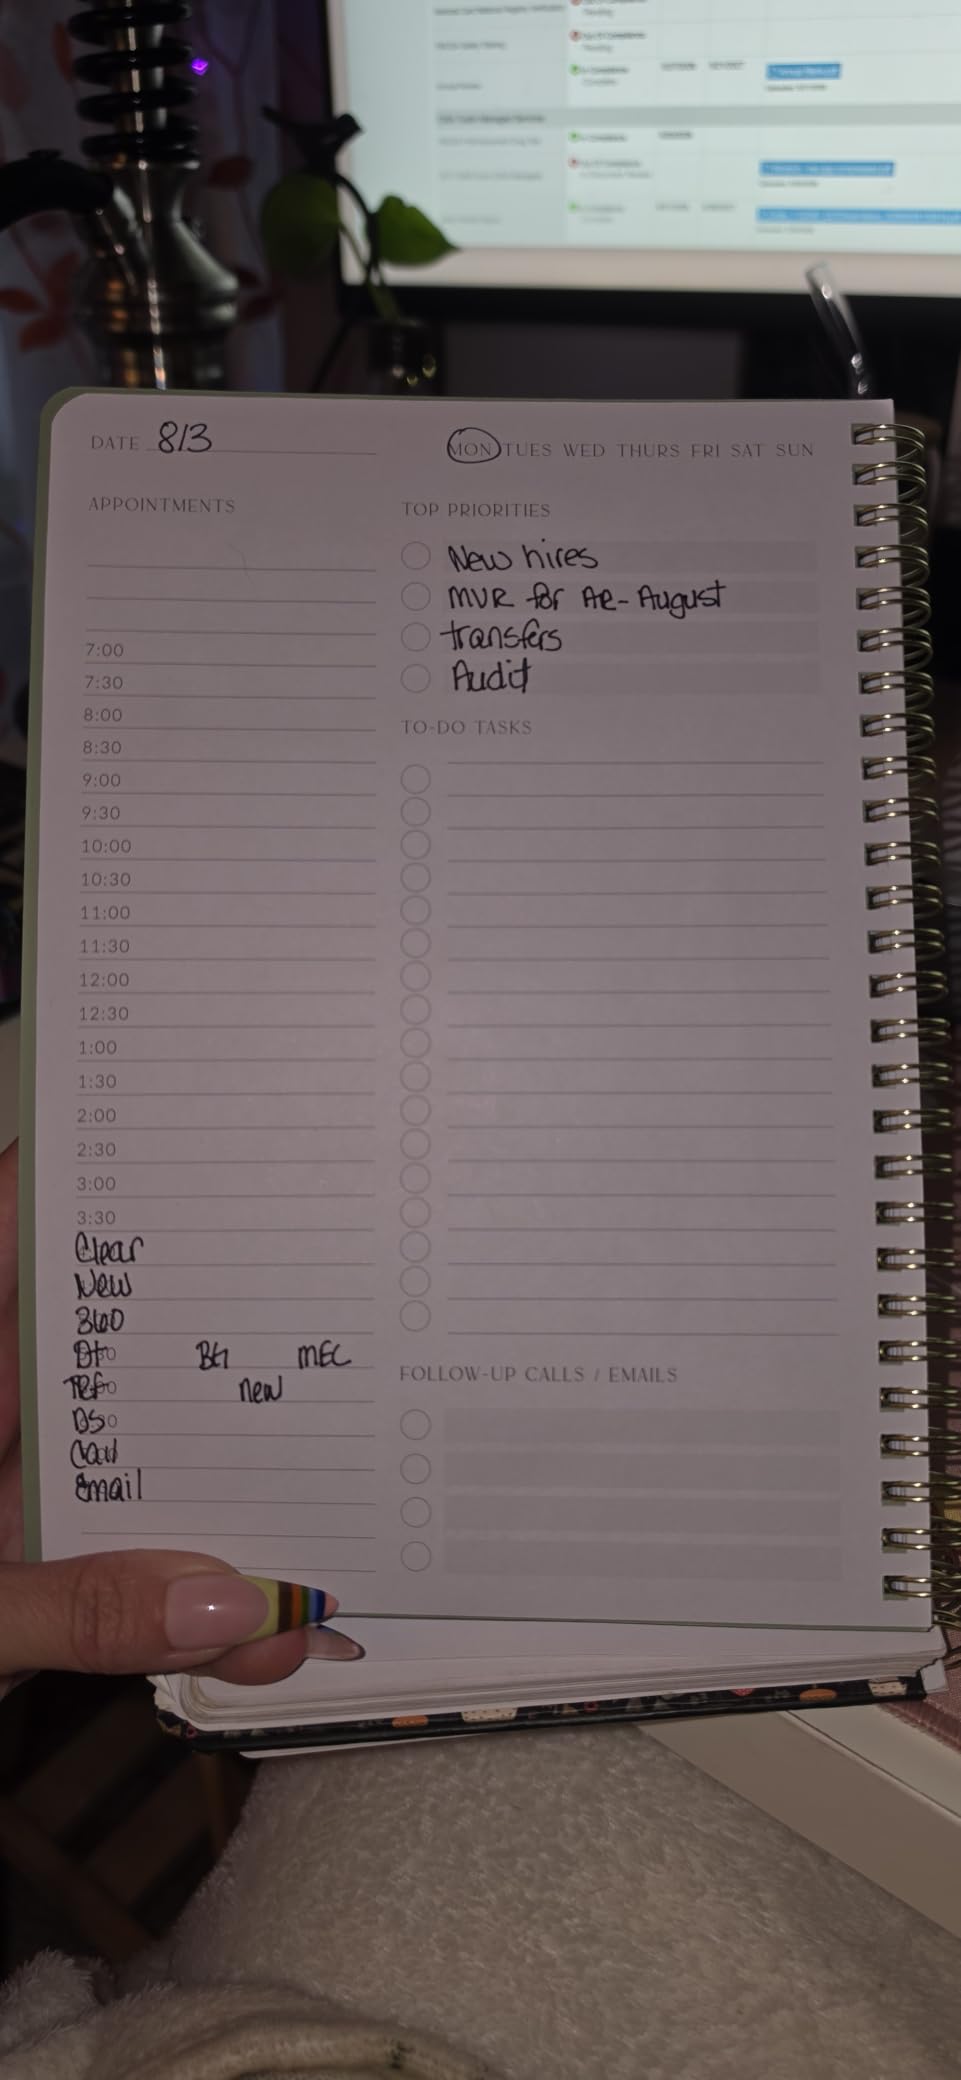 DATE 8/3
MON TUES WED THURS FRI SAT SUN
APPOINTMENTS
7:00
7:30
8:00
8:30
9:00
9:30
10:00
10:30
11:00
11:30
12:00
12:30
1:00
1:30
2:00
2:30
3:00
3:30
Clear
New
360
Dt BG MEC
new
DS
Email
TOP PRIORITIES
New hires
MVR for AR - August
transfers
Audit
TO-DO TASKS
FOLLOW-UP CALLS / EMAILS